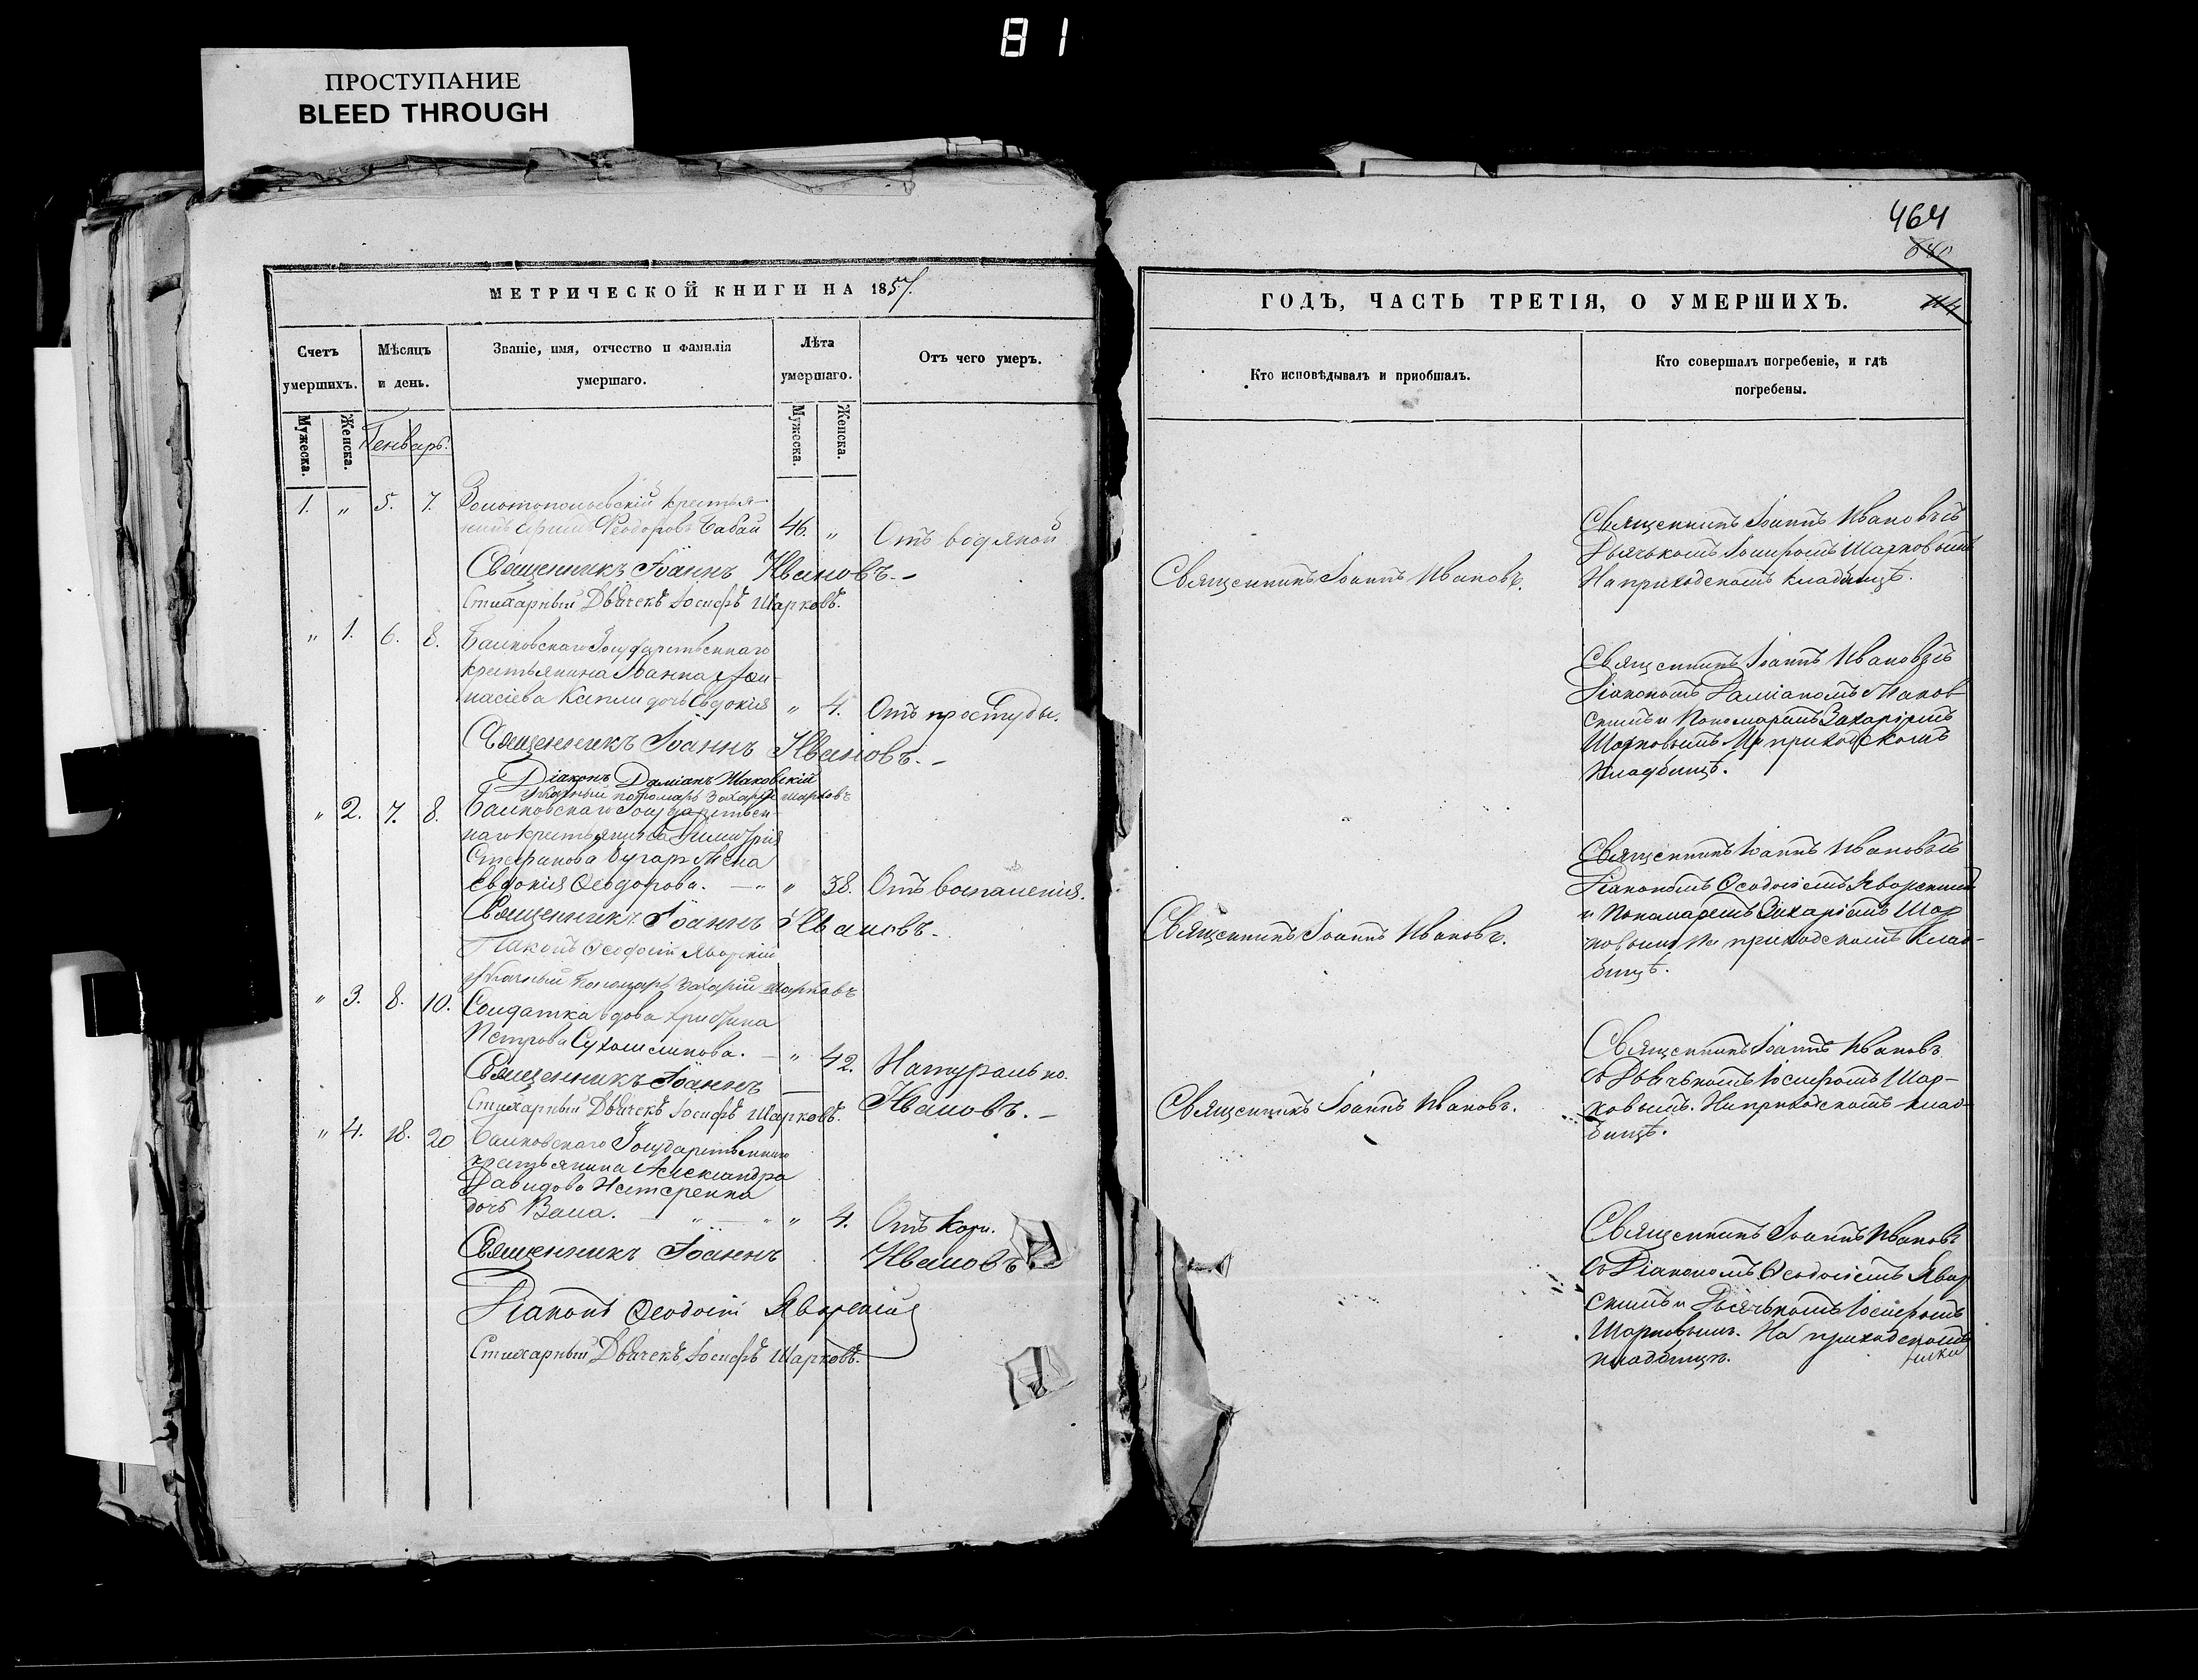 81
ПРОСТУПАНИЕ
BLEED THROUGH
МЕТРИЧЕСКОЙ КНИГИ НА 1857.
Счетъ умершихъ.
Мѣсяцъ и день.
Званіе, имя, отчество и фамилія умершаго.
Лѣта умершаго.
Отъ чего умеръ.
Мужеска.
Женска.
Генварь.
Мужеска.
Женска.
1. " 5. 7. крестья-
нинъ Феодоровъ Бабай 46. " Отъ водяной
Священникъ Іоаннъ Ивановъ.
Стихарный Дьячекъ Іосифъ Шарковъ.
" 1. 6. 8. Государственнаго
крестьянина Іоанна Афа-
насіева дочь Евдокія " 4. Отъ простуды.
Священникъ Іоаннъ Ивановъ.
Діаконъ Даміанъ Маковскій
пономарь Захарій Шарковъ
" 2. 7. 8. Государствен-
наго крестьянина Димитрія
Стефанова жена
Евдокія Феодорова. " 38. Отъ воспаленія.
Священникъ Іоаннъ Ивановъ.
Діаконъ Феодосій Яворскій
Пономарь Захарій Шарковъ
" 3. 8. 10. Солдатка вдова Христина
Петрова Сухомлинова. " 42. Натурально.
Священникъ Іоаннъ Ивановъ.
Стихарный Дьячекъ Іосифъ Шарковъ.
" 4. 18. 20 Государственнаго
крестьянина Александра
Давидова Нестеренка
дочь " 4. Отъ кори.
Священникъ Іоаннъ Ивановъ
Діаконъ Феодосій Яворскій
Стихарный Дьячекъ Іосифъ Шарковъ.
464
ГОДЪ, ЧАСТЬ ТРЕТІЯ, О УМЕРШИХЪ.
Кто исповѣдывалъ и приобщалъ.
Кто совершалъ погребеніе, и гдѣ
погребены.
Священникъ Іоаннъ Ивановъ.
Священникъ Іоаннъ Ивановъ съ
Дьячькомъ Іосифомъ Шарковымъ
На приходскомъ кладбищѣ.
Священникъ Іоаннъ Ивановъ съ
Діакономъ Даміаномъ Маков-
скимъ и Пономаремъ Захаріемъ
Шарковымъ На приходскомъ
кладбищѣ.
Священникъ Іоаннъ Ивановъ.
Священникъ Іоаннъ Ивановъ съ
Діакономъ Феодосіемъ Яворскимъ
и Пономаремъ Захаріемъ Шар
ковымъ На приходскомъ клад-
бищѣ.
Священникъ Іоаннъ Ивановъ.
Священникъ Іоаннъ Ивановъ
съ Дьячькомъ Іосифомъ Шар-
ковымъ. На приходскомъ клад-
бищѣ.
Священникъ Іоаннъ Ивановъ
съ Діакономъ Феодосіемъ Явор
скимъ и Дьячькомъ Іосифомъ
Шарковымъ. На приходскомъ
кладбищѣ.